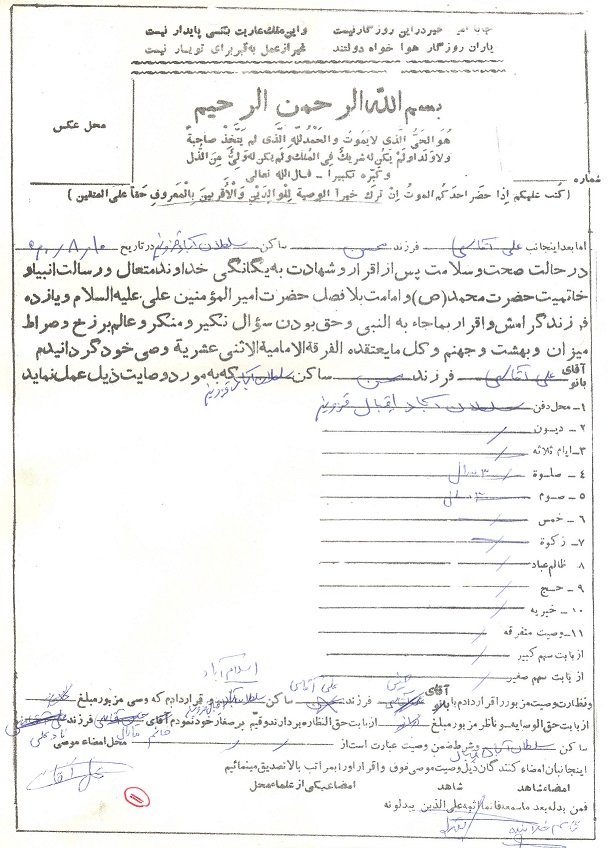 خیر در این روزگار نیست و این ملک عاریت بکسی پایدار نیست
یاران روزگار هوا خواه دولتند غیر از عمل به قبر برای تو یار نیست
محل عکس
بسم الله الرحمن الرحیم
هُوَ الحَیُّ الَّذی لا یَمُوتُ وَالحَمْدُ لِلّهِ الَّذی لَم یَتَّخِذْ صاحِبَةً
وَلا وَلَداً وَلَمْ یَکُنْ لَهُ شریکٌ فِی المُلکِ وَلَمْ یَکُنْ لَهُ وَلِیٌّ مِنَ الذُّلِّ
وَکَبِّرْهُ تَکبیراً - قال الله تعالی
شماره
(کُتِبَ عَلَیکُم اِذا حَضَرَ اَحَدَکُم المَوتُ اِنْ تَرَکَ خَیراً الوَصِیة لِلوالِدَینِ وَالْأَقْرَبینَ بِالْمَعرُوفِ حَقّاً عَلَی المتقین)
اما بعد اینجانب علی آقاسی فرزند حسن ساکن سلطان آباد قزوین در تاریخ
در حالت صحت و سلامت پس از اقرار و شهادت به یگانگی خداوند متعال و رسالت انبیا و
خاتمیت حضرت محمد (ص) و امامت بلافصل حضرت امیرالمؤمنین علی علیه السلام و یازده
فرزند گرامش و اقرار بما جاء به النبی و حق بودن سؤال نکیر و منکر و عالم برزخ و صراط
میزان و بهشت و جهنم و کل ما یعتقده الفرقة الامامیة الاثنی عشریة وصی خود گردانیدم
آقای بانو علی آقاسی فرزند حسن ساکن سلطان آباد قزوین که به موردو صایت ذیل عمل نماید
۱- محل دفن سلطان آباد اقبال قزوین
۲- دیون
۳- ایام ثلاثه
۴- صلوة ۳ سال
۵- صوم ۳ سال
۶- خمس
۷- زکوة
۸- ظالم عباد
۹- حج
۱۰- خیریه
۱۱- وصیت متفرقه
از بابت سهم کبیر
از بابت سهم صغیر
اسلام آباد
و نظارت وصیت مزبور را قرار دادم با آقای بانو فرزند علی آقاسی ساکن و قرار دادم که وصی مزبور مبلغ
از بابت حق الوصایه و ناظر مزبور مبلغ از بابت حق النظاره بردارد و قیم بر صغار خود نمودم آقای خانم فرزند
ساکن سلطان آباد و شرط ضمن وصیت عبارت است از محل امضاء موصی
اینجانبان امضاء کنندگان ذیل وصیت موصی فوق و اقرار او را بمراتب بالا تصدیق مینمائیم
علی آقاسی
امضاء شاهد شاهد امضاء یکی از علماء محل
فمن بدله بعد ما سمعه فانما اثمه علی الذین یبدلونه